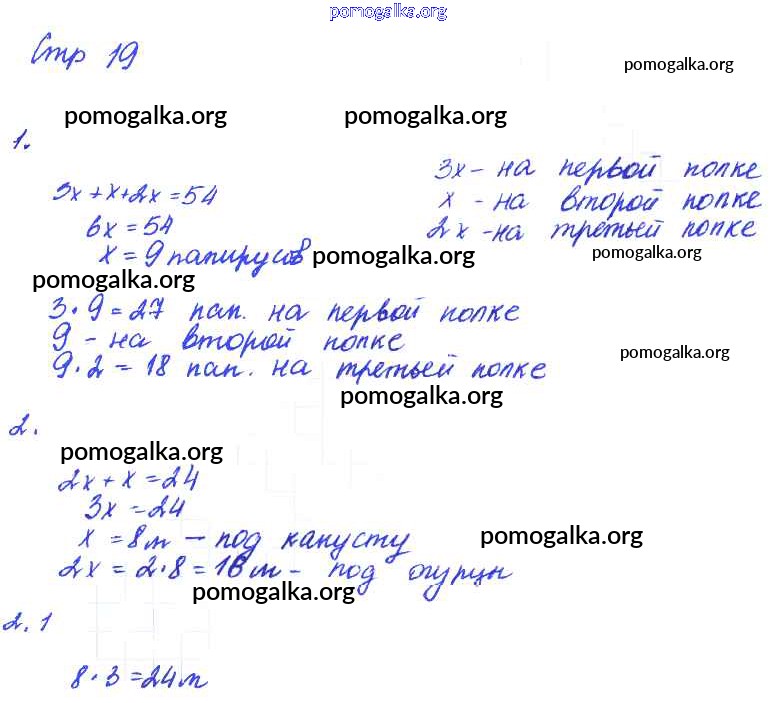 pomogalka.org
Стр 19
pomogalka.org
pomogalka.org pomogalka.org
1.
3x + x + 2x = 54
6x = 54
x = 9 папирусов
3x - на первой полке
x - на второй полке
2x - на третьей полке
pomogalka.org pomogalka.org
pomogalka.org
3 · 9 = 27 пап. на первой полке
9 - на второй полке
9 · 2 = 18 пап. на третьей полке
pomogalka.org
pomogalka.org
2.
pomogalka.org
2x + x = 24
3x = 24
x = 8м - под капусту
pomogalka.org
2x = 2·8 = 16м - под огурцы
pomogalka.org
2.1
8 · 3 = 24м